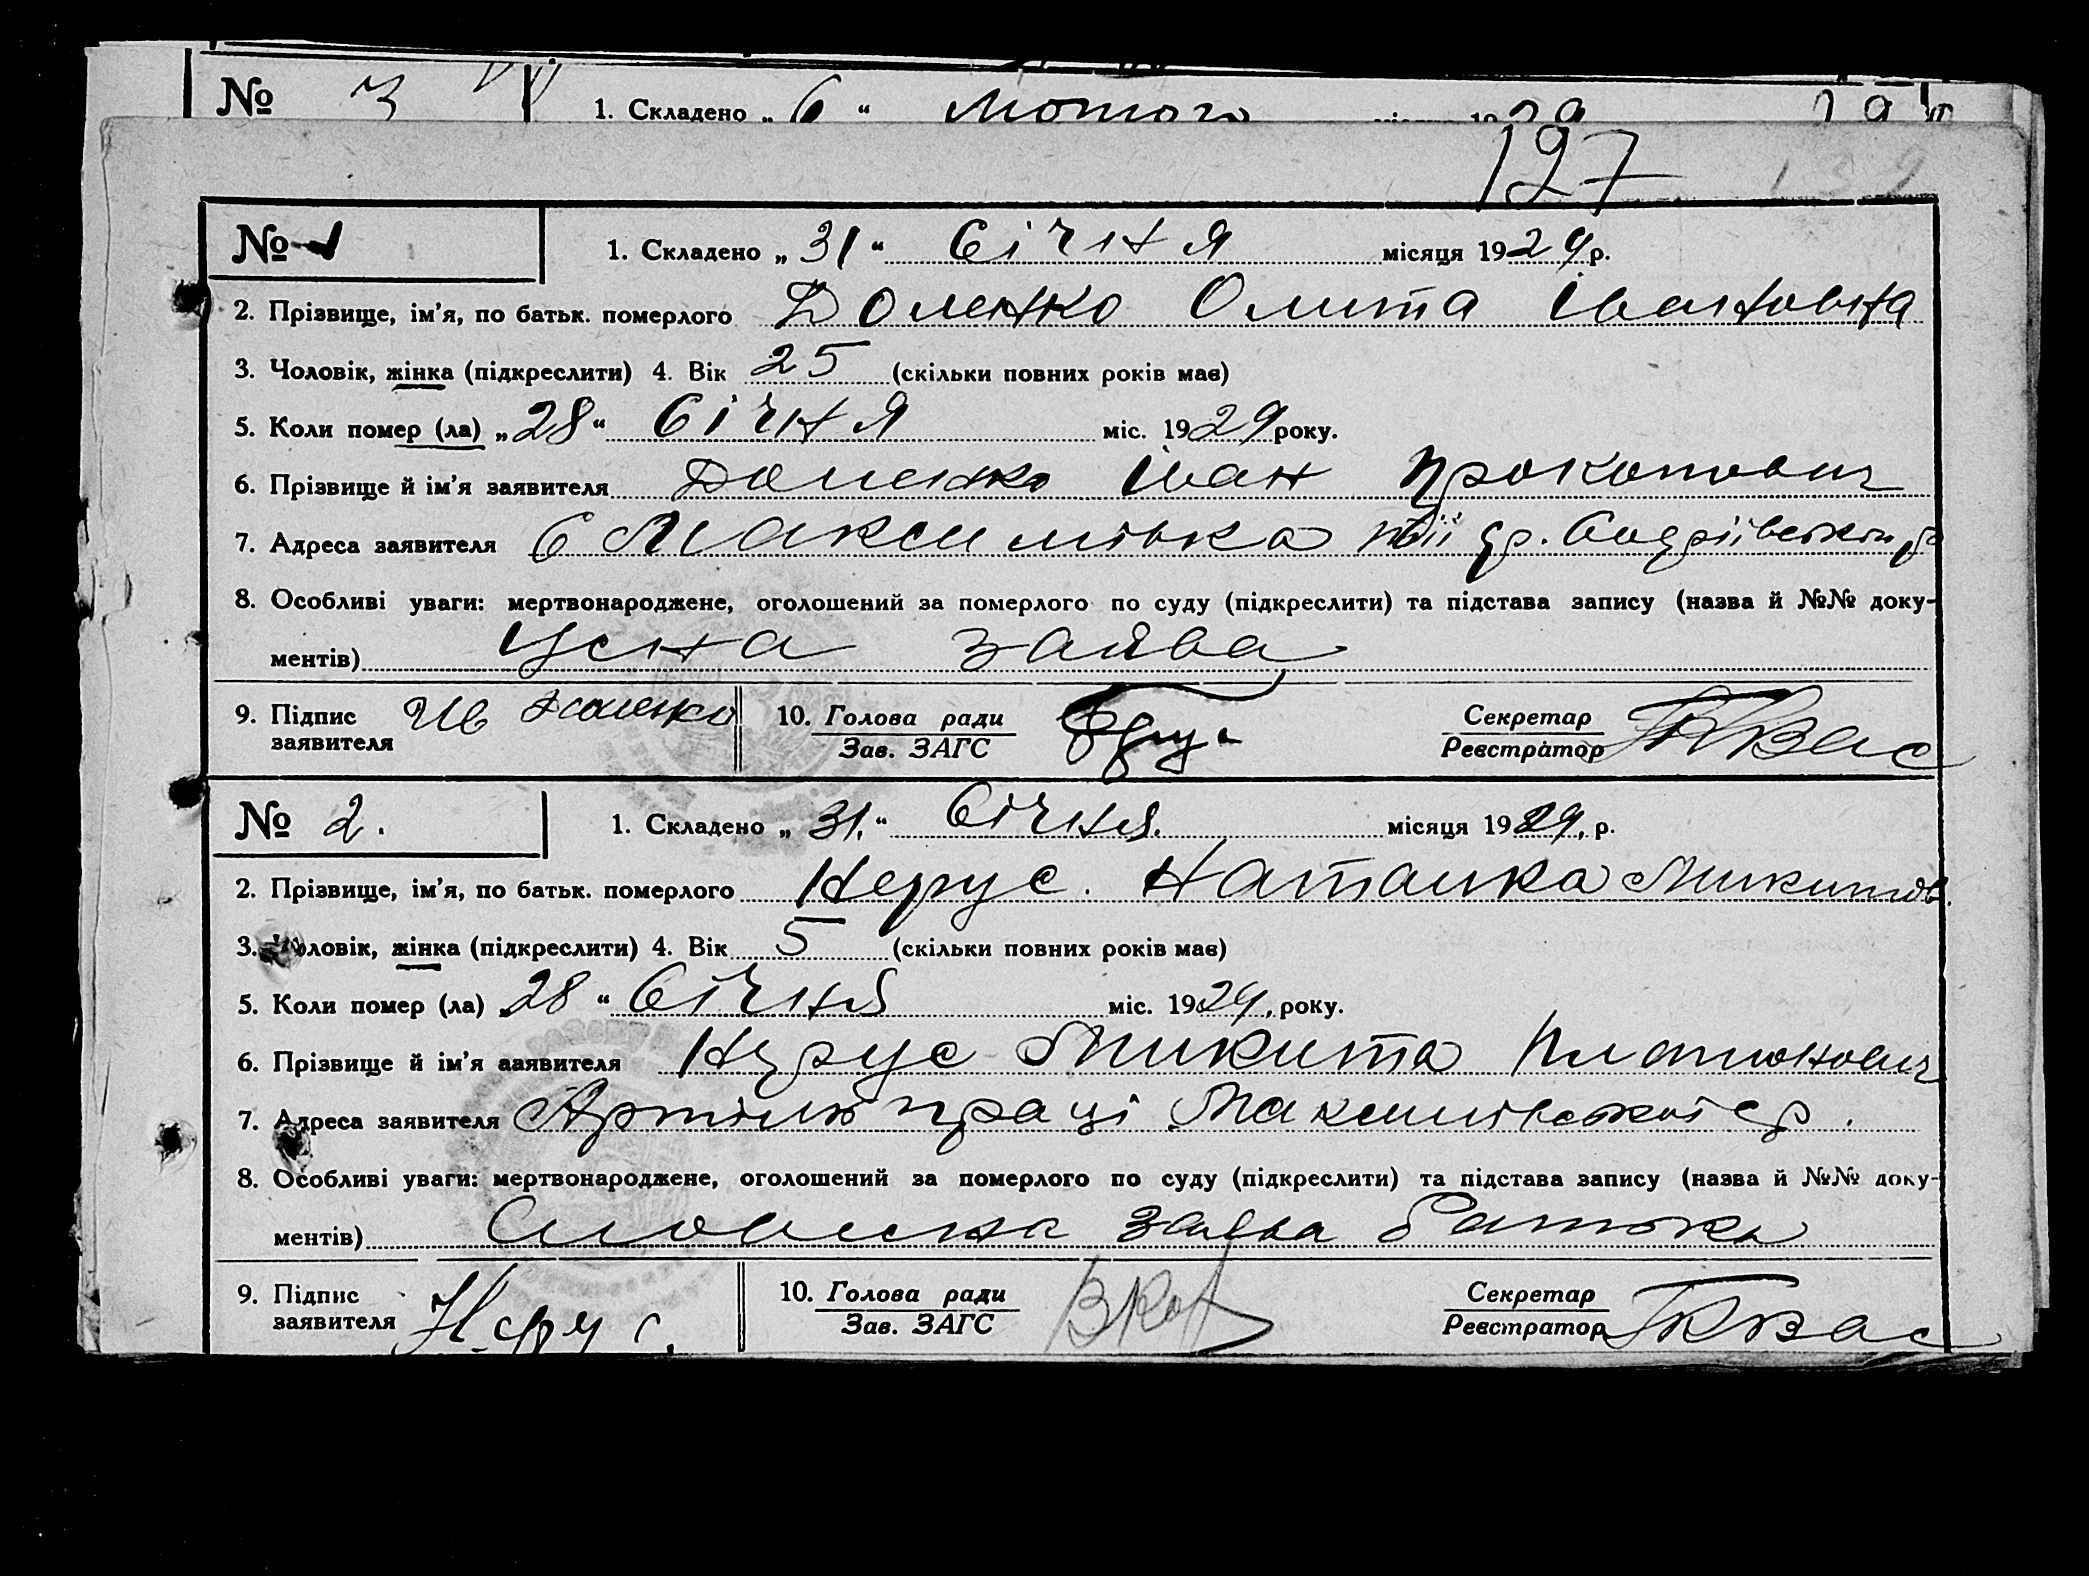 № 3 1. Складено „ 6 “ Лютого 29
197
139
№ 1 1. Складено „ 31 “ Січня місяця 1929 р.
2. Прізвище, ім’я, по батьк. померлого Доленко Олита Івановна
3. Чоловік, жінка (підкреслити) 4. Вік 25 (скільки повних років має)
5. Коли помер (ла) „ 28 “ Січня міс. 1929 року.
6. Прізвище й ім’я заявителя Доленко Іван Прокопович
7. Адреса заявителя С Максимівка
8. Особливі уваги: мертвонароджене, оголошений за померлого по суду (підкреслити) та підстава запису (назва й №№ доку-
ментів) Усна заява
9. Підпис заявителя Ив Доленко 10. Голова ради Зав. ЗАГС Секретар Реєстратор Квас
№ 2. 1. Складено „ 31. “ Січня. місяця 1929, р.
2. Прізвище, ім’я, по батьк. померлого Нерус. Наталка Микитов.
3. Чоловік, жінка (підкреслити) 4. Вік 5 (скільки повних років має)
5. Коли помер (ла) „ 28 “ Січня міс. 1929, року.
6. Прізвище й ім’я заявителя Нерус Микита Платонович
7. Адреса заявителя Артіль праці Максимівської ср.
8. Особливі уваги: мертвонароджене, оголошений за померлого по суду (підкреслити) та підстава запису (назва й №№ доку-
ментів) Словесна заява батька
9. Підпис заявителя Нерус. 10. Голова ради Зав. ЗАГС Секретар Реєстратор Квас